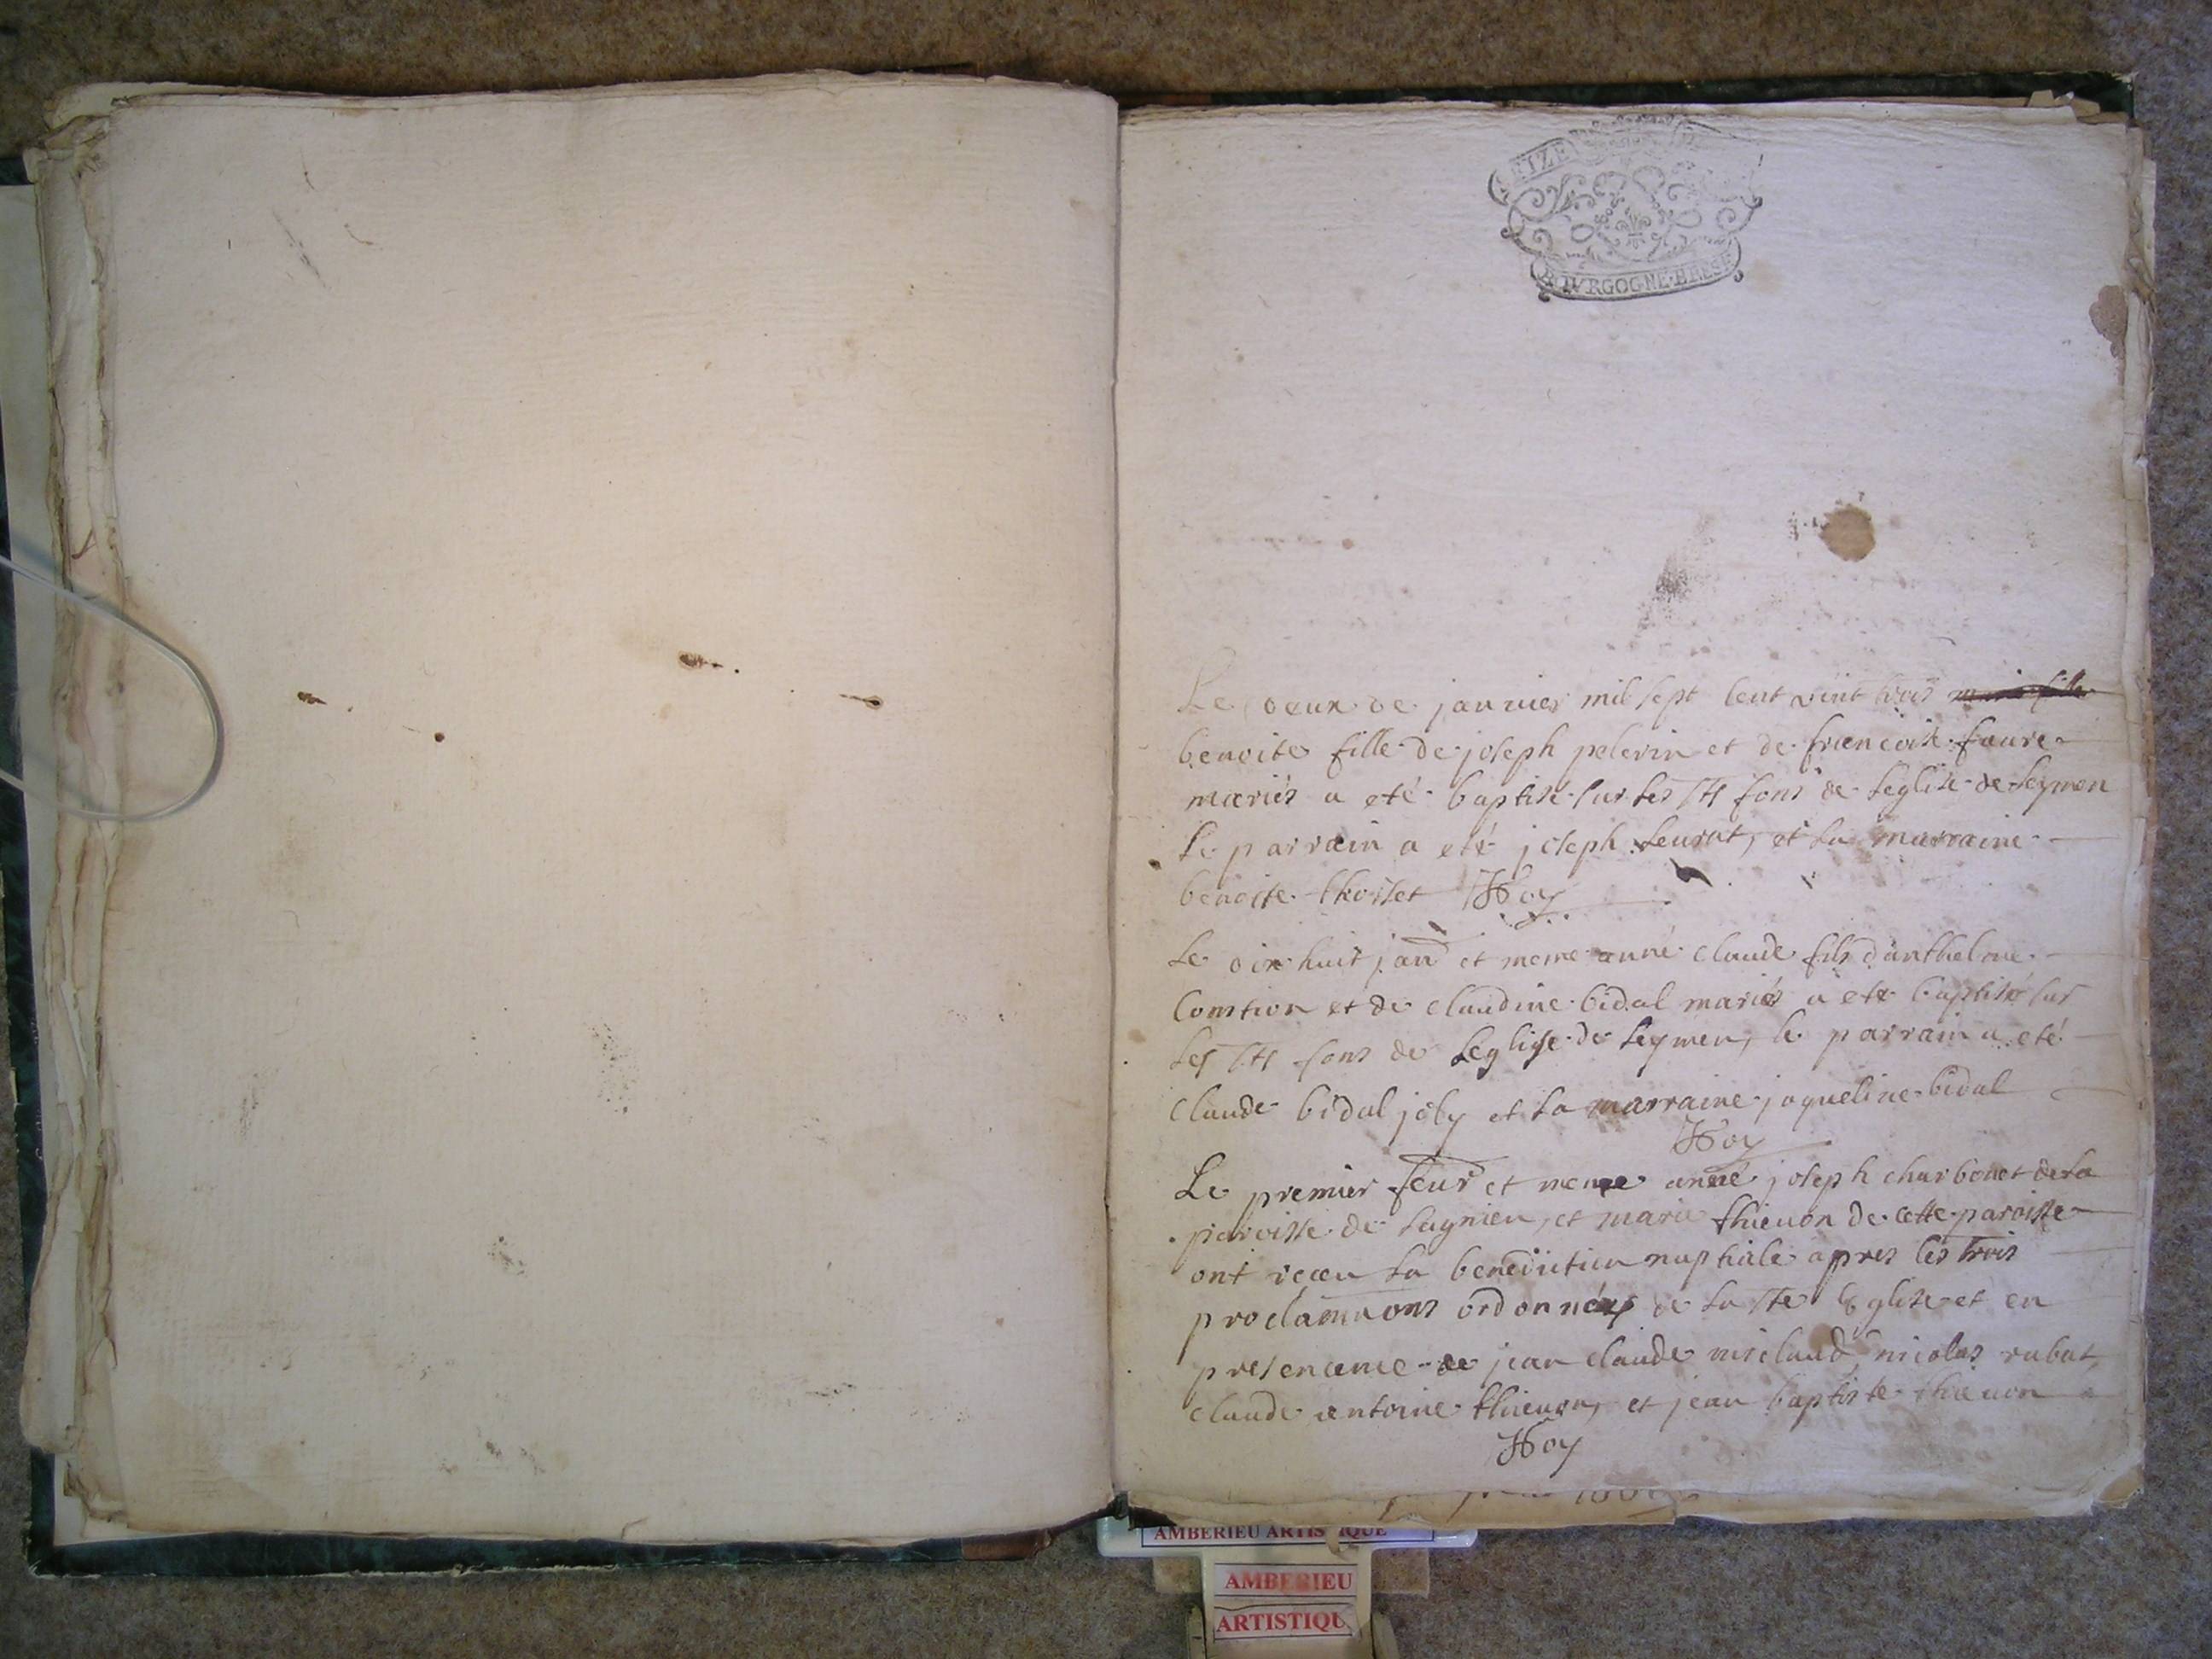 SEIZE
BOVRGOGNE·BRESSE
Le deux de janvier mil sept cent vint trois
benoite fille de joseph pelerin et de francoise faure
mariés a eté baptisé sur les sts fons de leglise de leymen
Le parrain a eté joseph leurat, et la marraine
benoite thosset Hoy
Le dix huit janr et meme anné claude fils danthelme
Comtion et de claudine bidal mariés a eté baptisé sur
les sts fons de leglise de leymen, le parrain a eté
claude bidal joly et la marraine jaqueline bidal
Hoy
Le premier feur et meme anné joseph charbonet de la
paroisse de lagnieu, et marie thieuon de cette paroisse
ont receu la benediction nuptiale apres les trois
ordonnées de la ste Eglise et en
de jean claude miclaud, nicolas rubat,
claude antoine thieuon, et jean baptiste thieuon
Hoy
AMBERIEU ARTISTIQUE
AMBERIEU
ARTISTIQU